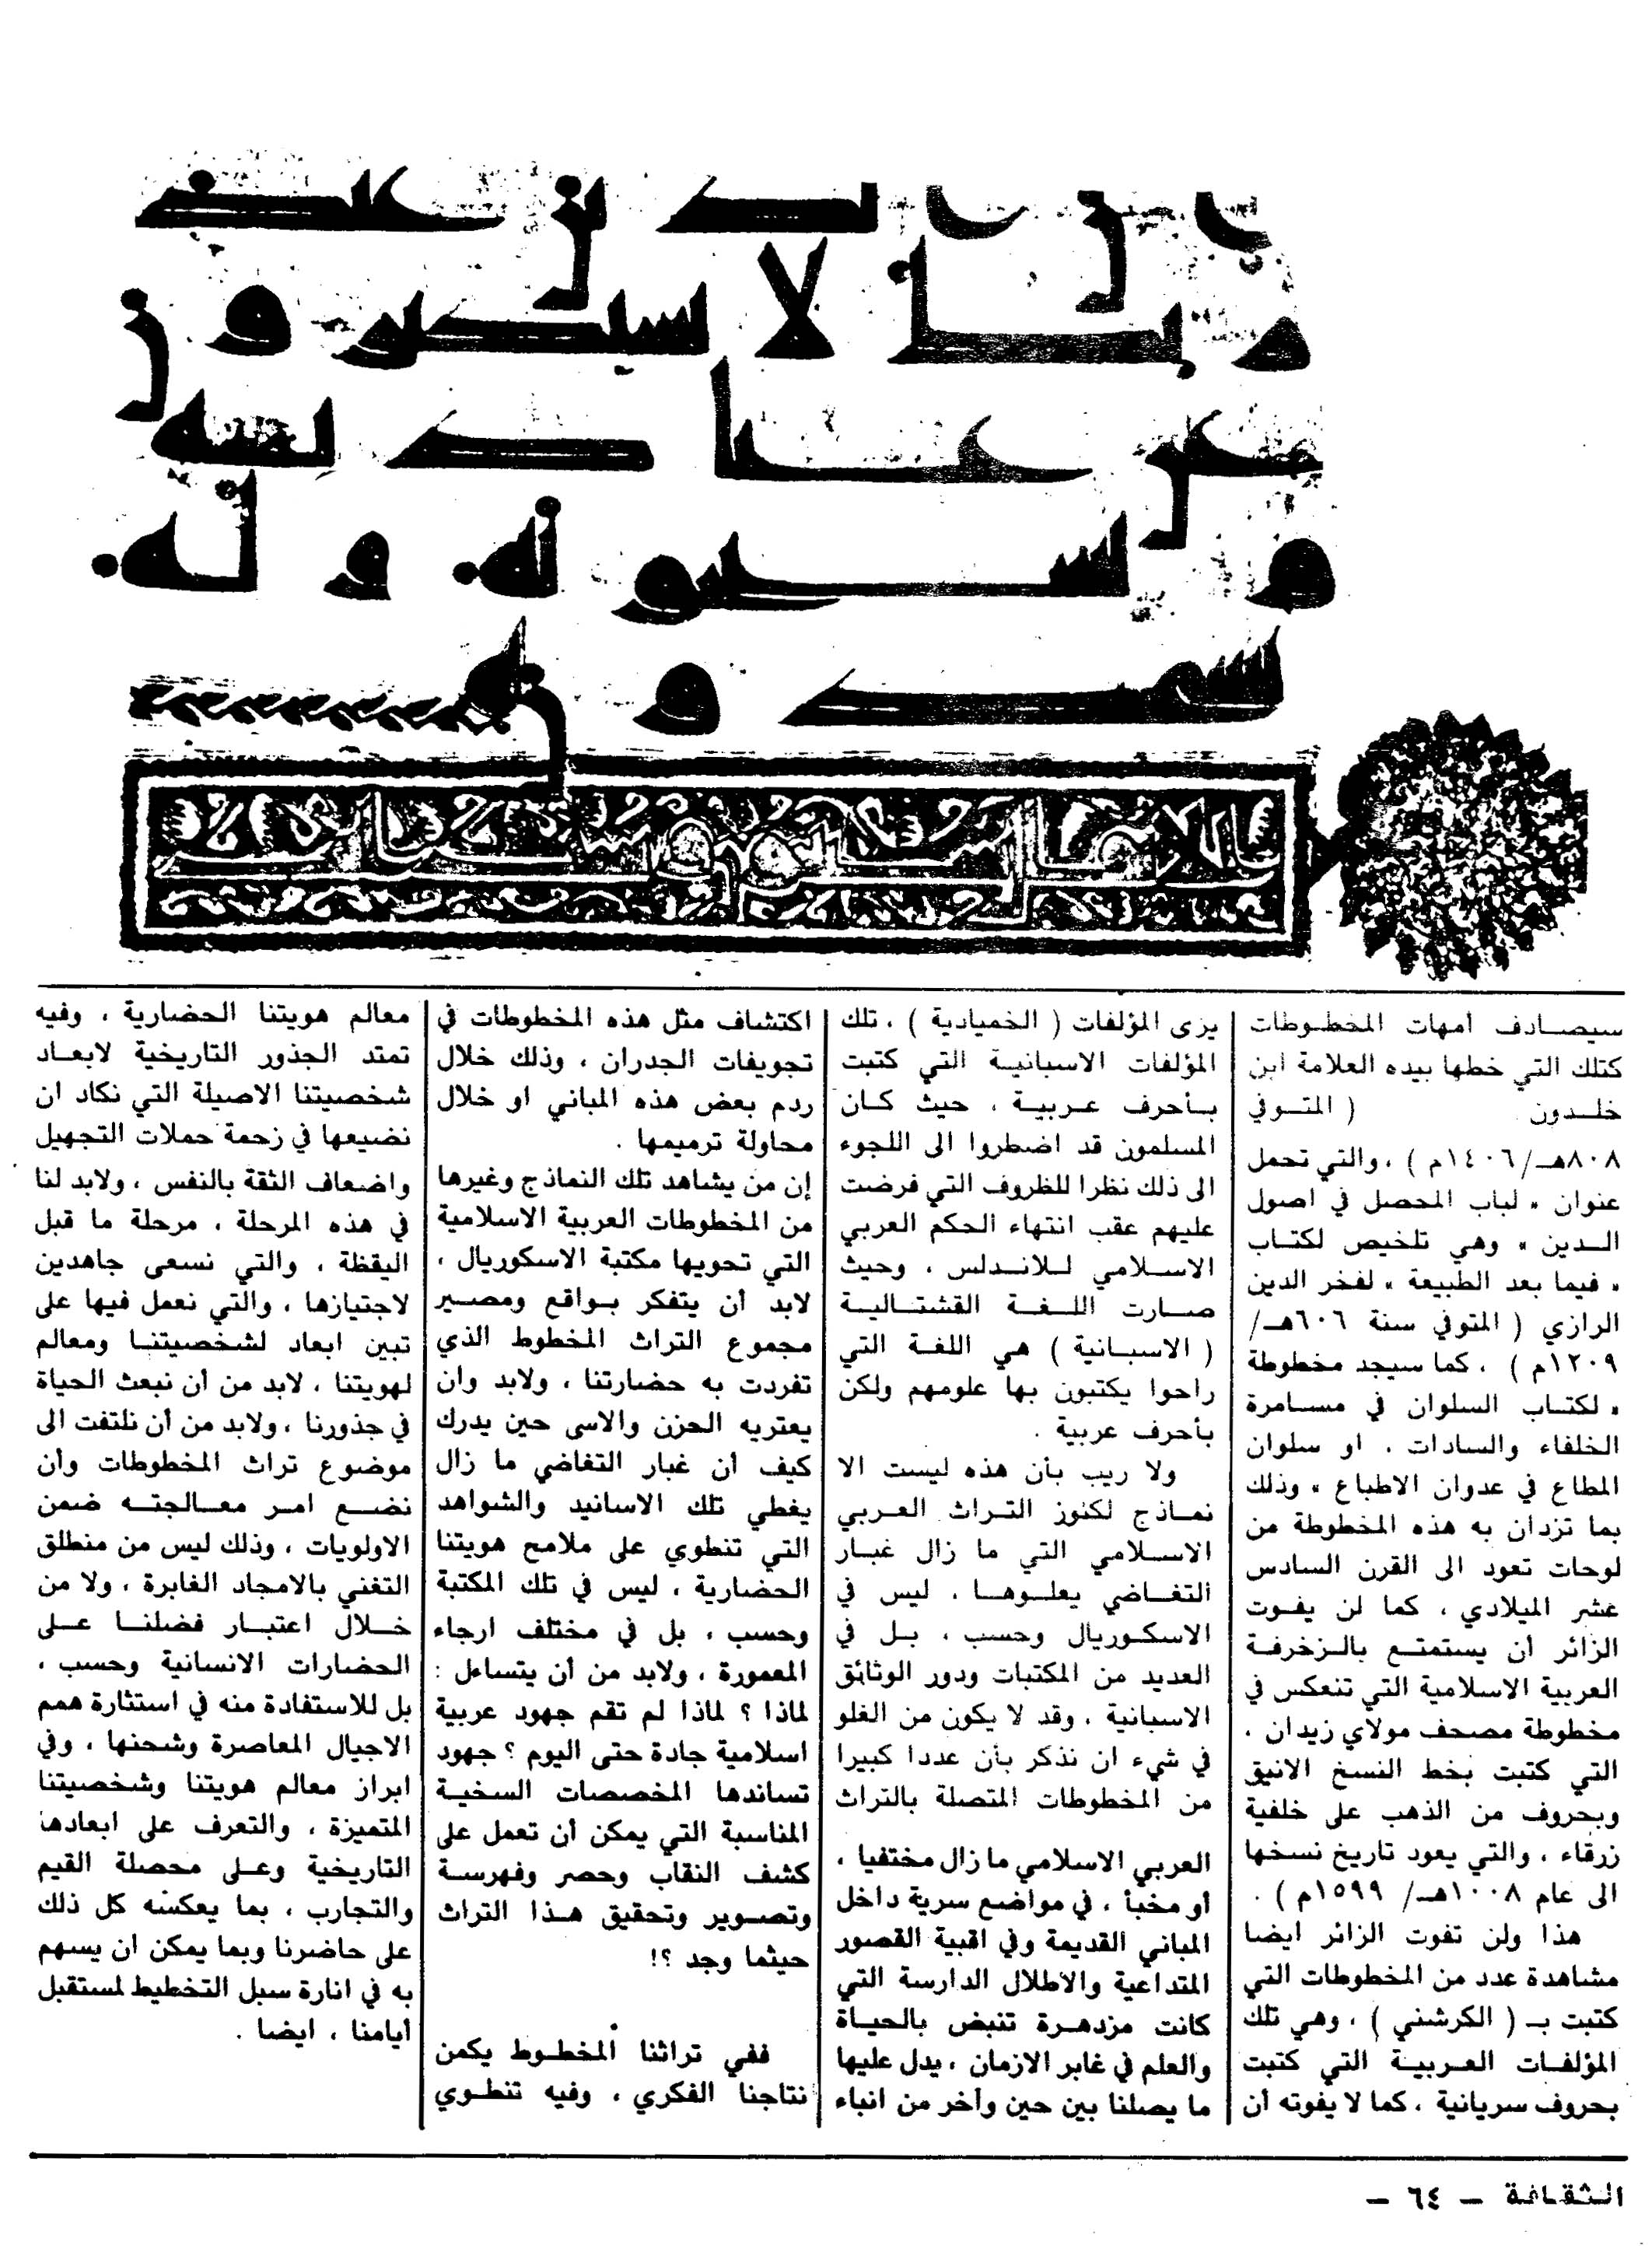 ربك لا يستكبرون
عن عبادته
ويسبحونه وله
يسجدون
سيصادف امهات المخطوطات
كتلك التي خطها بيده العلامة ابن
خلدون ( المتوفي
٨٠٨هـ/١٤٠٦م ) ، والتي تحمل
عنوان « لباب المحصل في اصول
الدين » وهي تلخيص لكتاب
« فيما بعد الطبيعة » لفخر الدين
الرازي ( المتوفي سنة ٦٠٦هـ/
١٢٠٩م ) ، كما سيجد مخطوطة
« لكتاب السلوان في مسامرة
الخلفاء والسادات ، او سلوان
المطاع في عدوان الاطباع » وذلك
بما تزدان به هذه المخطوطة من
لوحات تعود الى القرن السادس
عشر الميلادي ، كما لن يفوت
الزائر أن يستمتع بالزخرفة
العربية الاسلامية التي تنعكس في
مخطوطة مصحف مولاي زيدان ،
التي كتبت بخط النسخ الانيق
وبحروف من الذهب على خلفية
زرقاء ، والتي يعود تاريخ نسخها
الى عام ١٠٠٨هـ/ ١٥٩٩م ) .
هذا ولن تفوت الزائر ايضا
مشاهدة عدد من المخطوطات التي
كتبت بـ ( الكرشني ) ، وهي تلك
المؤلفات العربية التي كتبت
بحروف سريانية ، كما لا يفوته أن
يرى المؤلفات ( الخميادية ) ، تلك
المؤلفات الاسبانية التي كتبت
بأحرف عربية ، حيث كان
المسلمون قد اضطروا الى اللجوء
الى ذلك نظرا للظروف التي فرضت
عليهم عقب انتهاء الحكم العربي
الاسلامي للاندلس ، وحيث
صارت اللغة القشتالية
( الاسبانية ) هي اللغة التي
راحوا يكتبون بها علومهم ولكن
بأحرف عربية .
ولا ريب بأن هذه ليست الا
نماذج لكنوز التراث العربي
الاسلامي التي ما زال غبار
التغاضي يعلوها ، ليس في
الاسكوريال وحسب ، بل في
العديد من المكتبات ودور الوثائق
الاسبانية ، وقد لا يكون من الغلو
في شيء ان نذكر بأن عددا كبيرا
من المخطوطات المتصلة بالتراث
العربي الاسلامي ما زال مختفيا ،
أو مخبأ ، في مواضع سرية داخل
المباني القديمة وفي اقبية القصور
المتداعية والاطلال الدارسة التي
كانت مزدهرة تنبض بالحياة
والعلم في غابر الازمان ، يدل عليها
ما يصلنا بين حين وآخر من انباء
اكتشاف مثل هذه المخطوطات في
تجويفات الجدران ، وذلك خلال
ردم بعض هذه المباني او خلال
محاولة ترميمها .
إن من يشاهد تلك النماذج وغيرها
من المخطوطات العربية الاسلامية
التي تحويها مكتبة الاسكوريال ،
لابد أن يتفكر بواقع ومصير
مجموع التراث المخطوط الذي
تفردت به حضارتنا ، ولابد وأن
يعتريه الحزن والاسى حين يدرك
كيف أن غبار التغاضي ما زال
يغطي تلك الاسانيد والشواهد
التي تنطوي على ملامح هويتنا
الحضارية ، ليس في تلك المكتبة
وحسب ، بل في مختلف ارجاء
المعمورة ، ولابد من أن يتساءل :
لماذا ؟ لماذا لم تقم جهود عربية
اسلامية جادة حتى اليوم ؟ جهود
تساندها المخصصات السخية
المناسبة التي يمكن أن تعمل على
كشف النقاب وحصر وفهرسة
وتصوير وتحقيق هذا التراث
حيثما وجد ؟!
ففي تراثنا المخطوط يكمن
نتاجنا الفكري ، وفيه تنطوي
معالم هويتنا الحضارية ، وفيه
تمتد الجذور التاريخية لابعاد
شخصيتنا الاصيلة التي نكاد ان
نضيعها في زحمة حملات التجهيل
واضعاف الثقة بالنفس ، ولابد لنا
في هذه المرحلة ، مرحلة ما قبل
اليقظة ، والتي نسعى جاهدين
لاجتيازها ، والتي نعمل فيها على
تبين ابعاد لشخصيتنا ومعالم
لهويتنا ، لابد من أن نبعث الحياة
في جذورنا ، ولابد من أن نلتفت الى
موضوع تراث المخطوطات وأن
نضع امر معالجته ضمن
الاولويات ، وذلك ليس من منطلق
التغني بالامجاد الغابرة ، ولا من
خلال اعتبار فضلنا على
الحضارات الانسانية وحسب ،
بل للاستفادة منه في استثارة همم
الاجيال المعاصرة وشحنها ، وفي
ابراز معالم هويتنا وشخصيتنا
المتميزة ، والتعرف على ابعادها
التاريخية وعلى محصلة القيم
والتجارب ، بما يعكسه كل ذلك
على حاضرنا وبما يمكن ان يسهم
به في انارة سبل التخطيط لمستقبل
أيامنا ، ايضا .
الثقافة - ٦٤ -